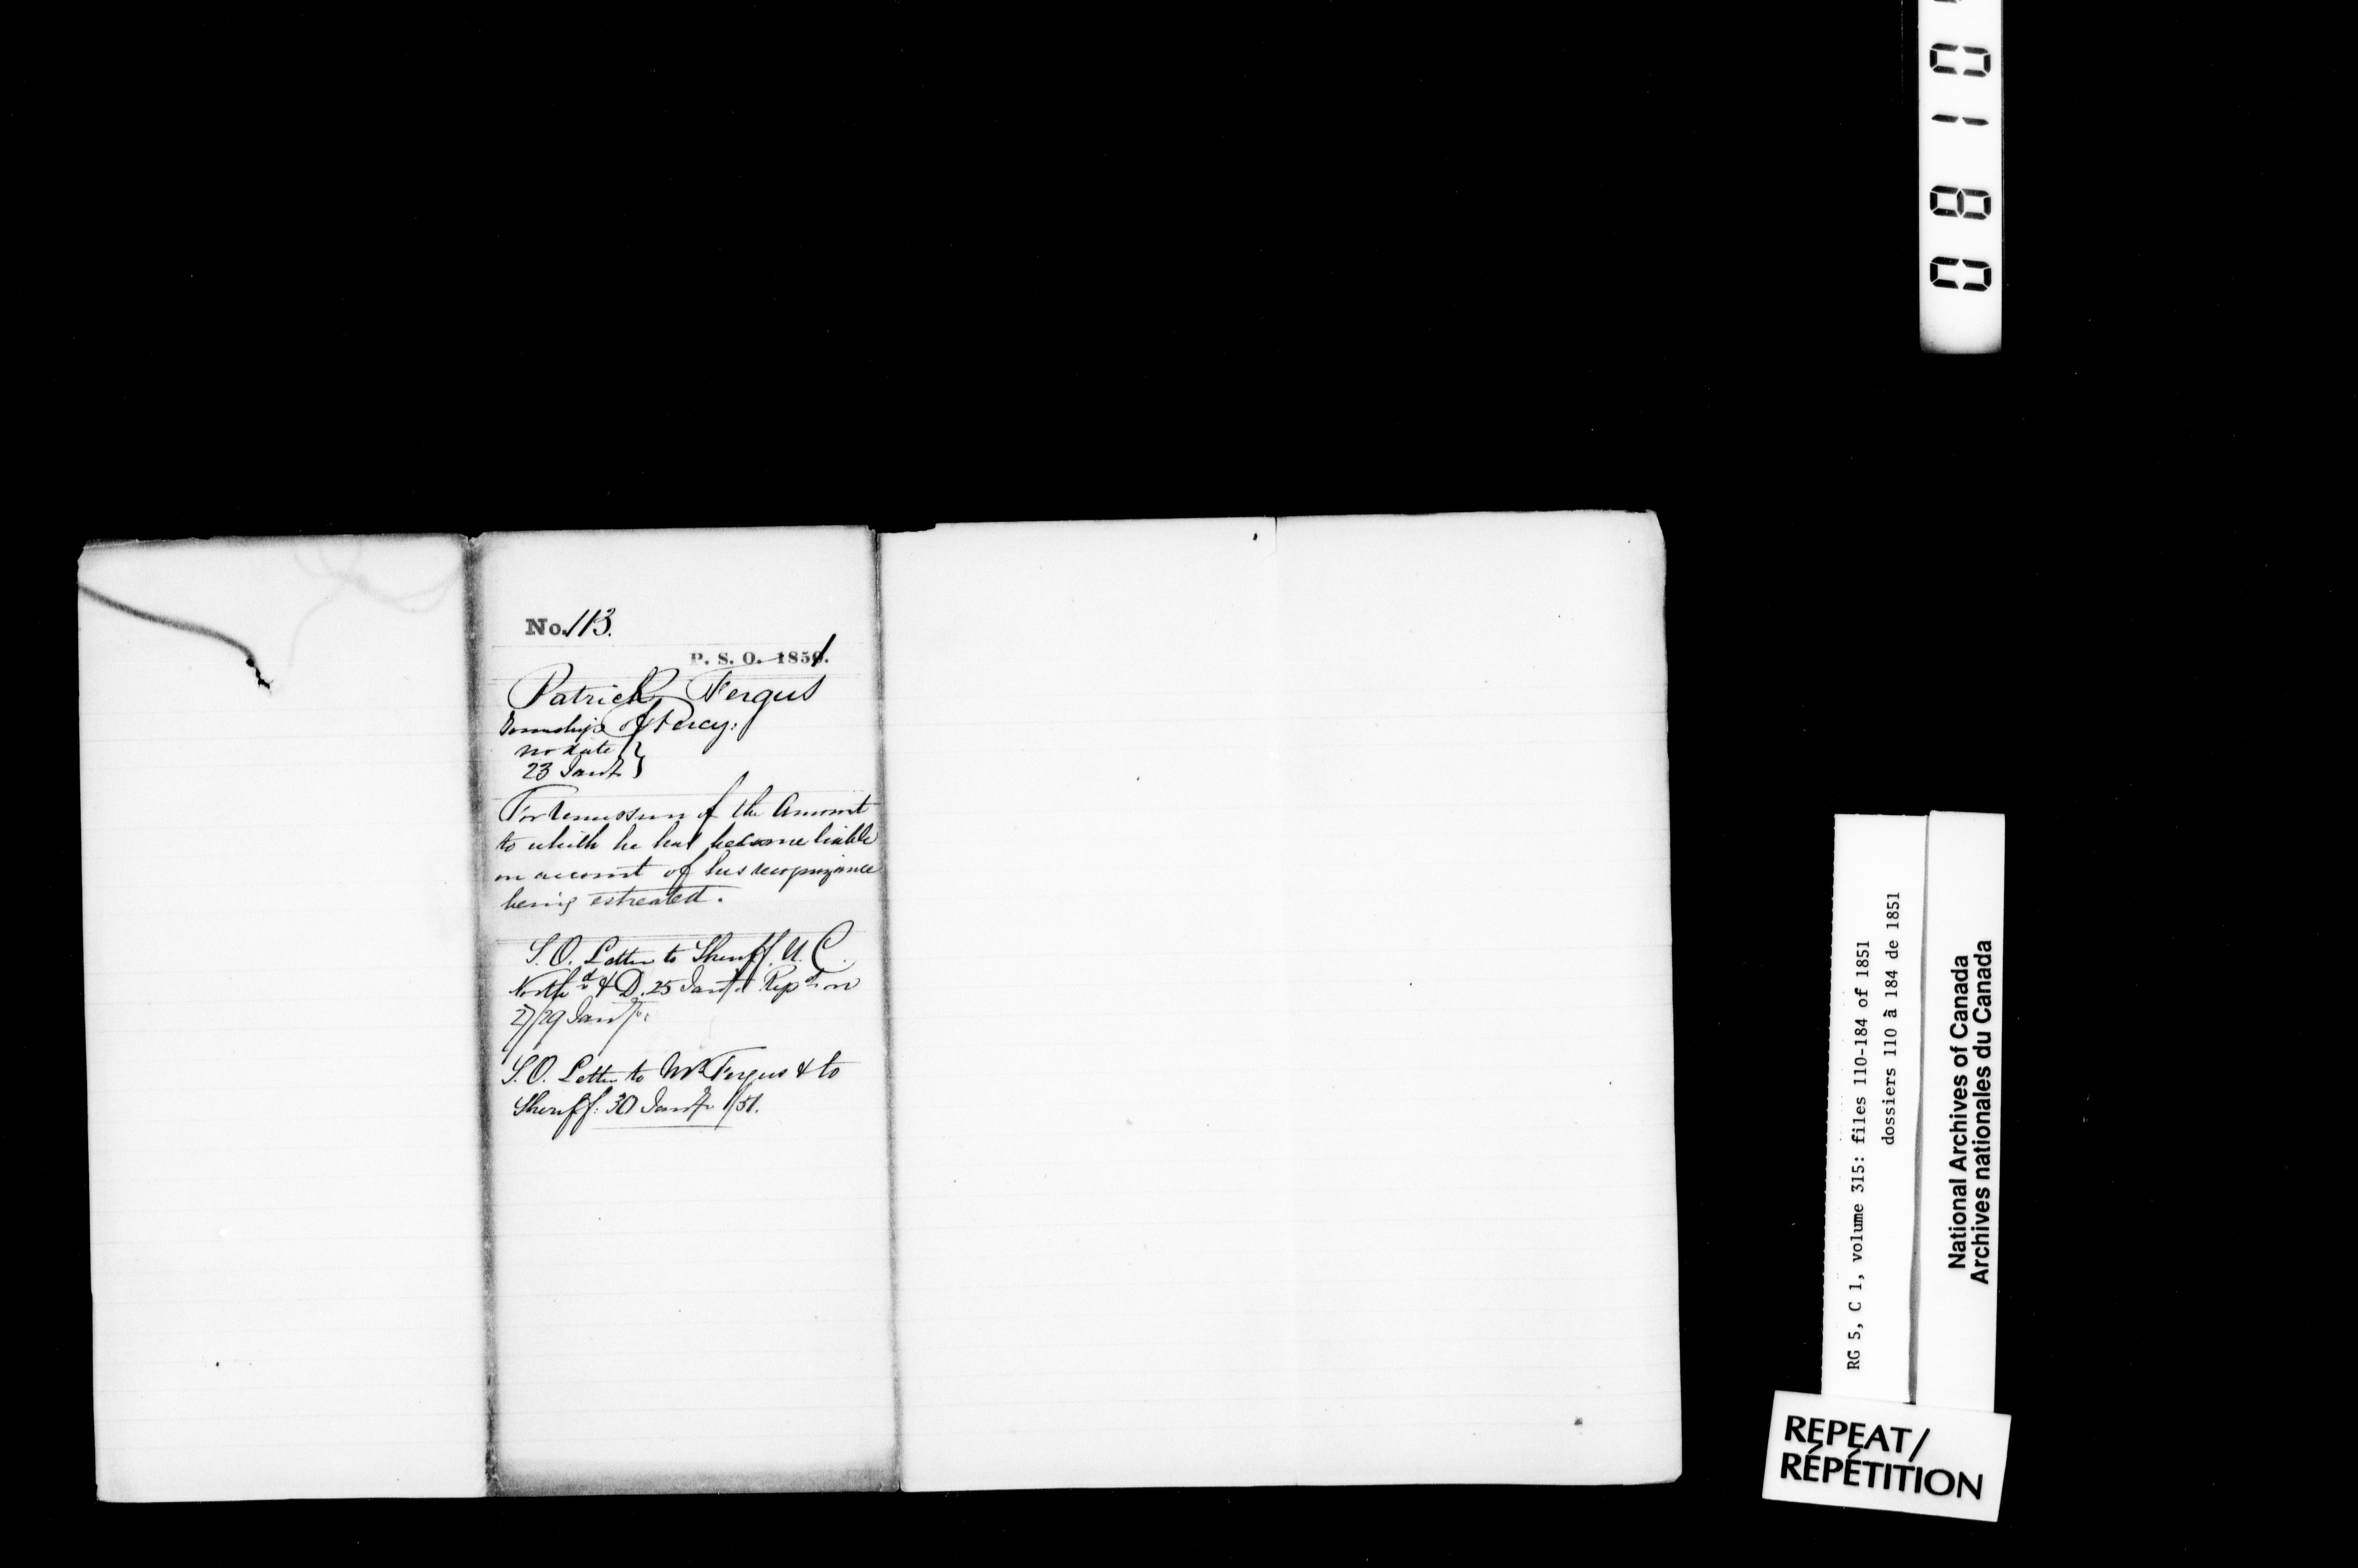 No. 113.
P. S. O. 1851.
Patrick Fergus
Township of Percy.
no date
23 Jany
For remission of the Amount
to which he has become liable
on account of his recognizance
being estreated.
S.O. Letter to Sheriff. U. C.
Northd & D. 25 Jany Repd on
27/29 Jany.
S.O. Letter to Mr Fergus & to
Sheriff. 30 Jany /51.
0810
RG 5, C 1, volume 315: files 110-184 of 1851
dossiers 110 à 184 de 1851
National Archives of Canada
Archives nationales du Canada
REPEAT/
RÉPÉTITION